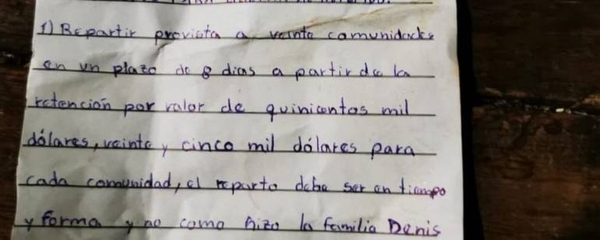 1) Repartir provista a veinte comunidades
en un plazo de 8 dias a partir de la
retención por valor de quinientos mil
dólares, veinte y cinco mil dólares para
cada comunidad, el reparto debe ser en tiempo
y forma y no como hizo la familia Denis